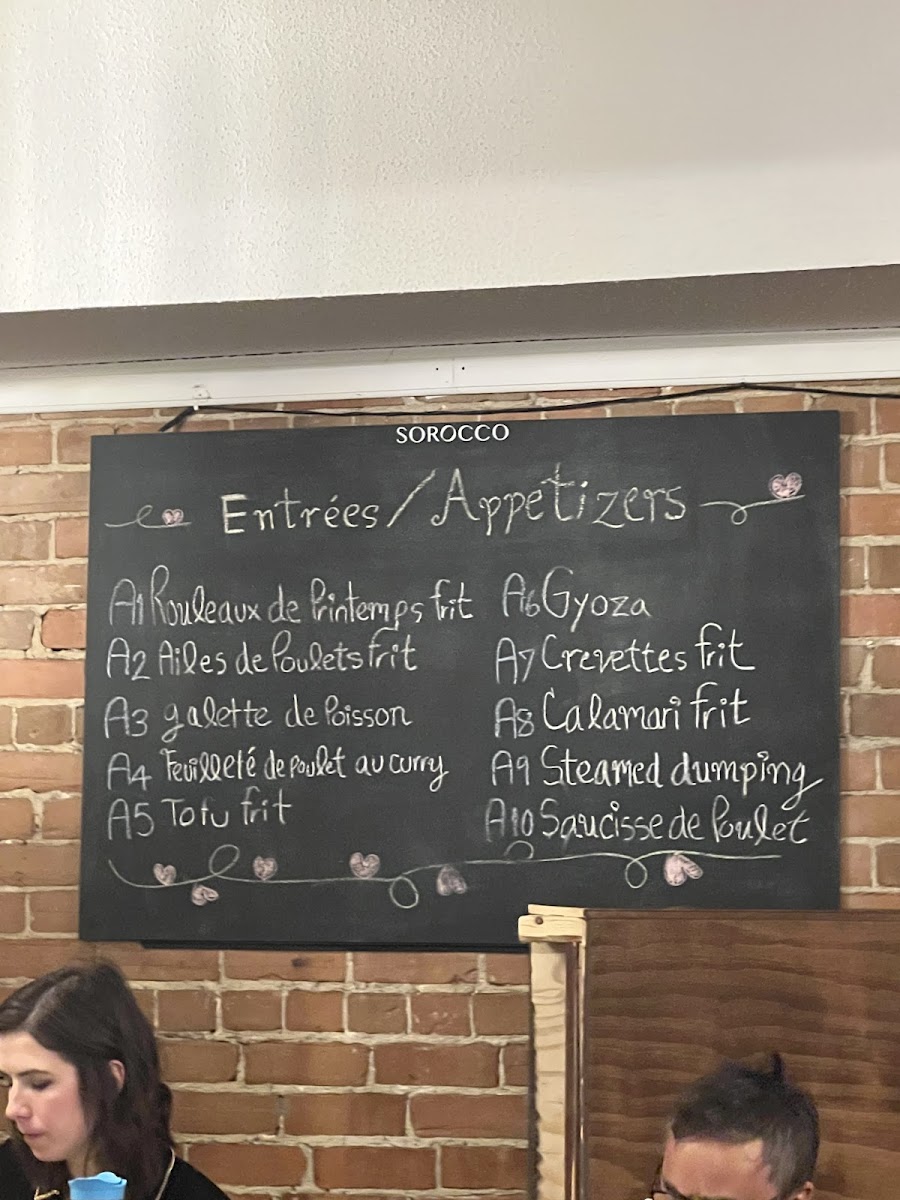 SOROCCO
Entrées/Appetizers
A1 Rouleaux de Printemps frit
A2 Ailes de Poulets frit
A3 galette de Poisson
A4 Feuilleté de poulet au curry
A5 Tofu frit
A6 Gyoza
A7 Crevettes frit
A8 Calamari frit
A9 Steamed dumping
A10 Saucisse de Poulet